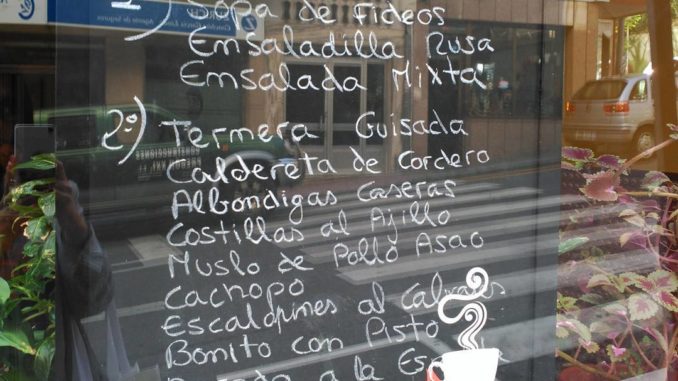 Sopa de Fideos
Ensaladilla Rusa
Ensalada Mixta
2º) Termera Guisada
Caldereta de Cordero
Albondigas Caseras
Costillas al Ajillo
Muslo de Pollo Asao
Cachopo
Escalopines al
Bonito con Pisto
a la